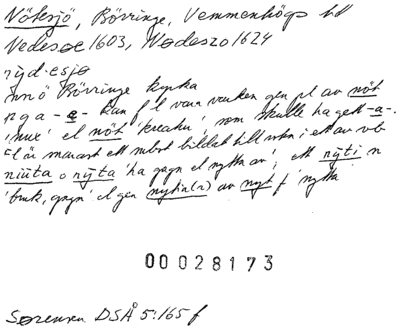 Nötesjö, Börringe, Vemmenhögs hd
Vedesøe 1603, Nødeszo 1624
nýd-esjø
snö Börringe kyrka
p g a -e- kan f l vara varken gen pl av nöt
'nux' el nöt 'kreatur', som skulle ha gett -a-.
F l är snarast ett subst bildat till i ett av vb
niuta o nýta 'ha gagn el nytta av'; ett nýti n
'bruk, gagn' el gen nytia(r) av nyt f 'nytta'
00028173
Sørensen DSÅ 5:165 f